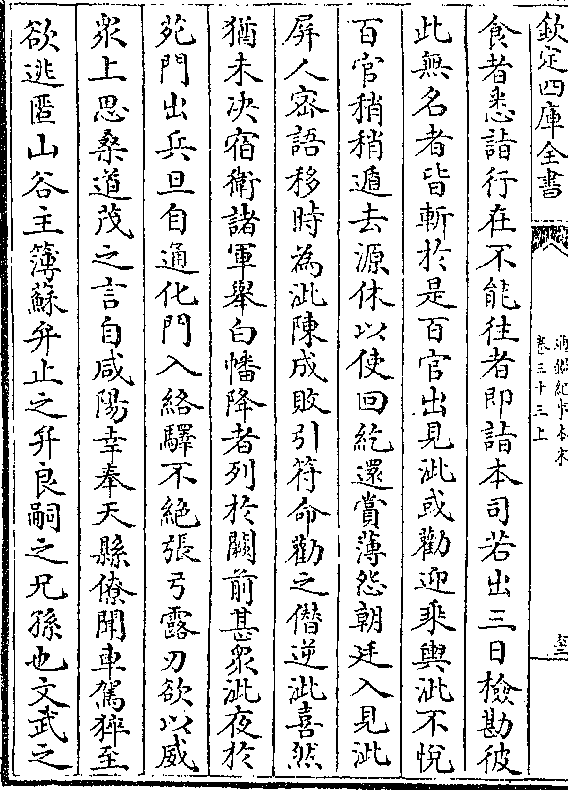 欽定四庫全書
通鑑紀事本末
卷三十三上
食者悉詣行在不能往者即詣本司若出三日檢勘彼
此無名者皆斬於是百官出見泚或勸迎乘輿泚不悅
百官稍稍遁去源休以使回紇還賞薄怨朝廷入見泚
屏人密語移時為泚陳成敗引符命勸之僭逆泚喜然
猶未決宿衛諸軍舉白幡降者列於闕前甚衆泚夜於
苑門出兵旦自通化門入絡驛不絶張弓露刃欲以威
衆上思桑道茂之言自咸陽幸奉天縣僚聞車駕猝至
欲逃匿山谷主簿蘇弁止之弁良嗣之兄孫也文武之